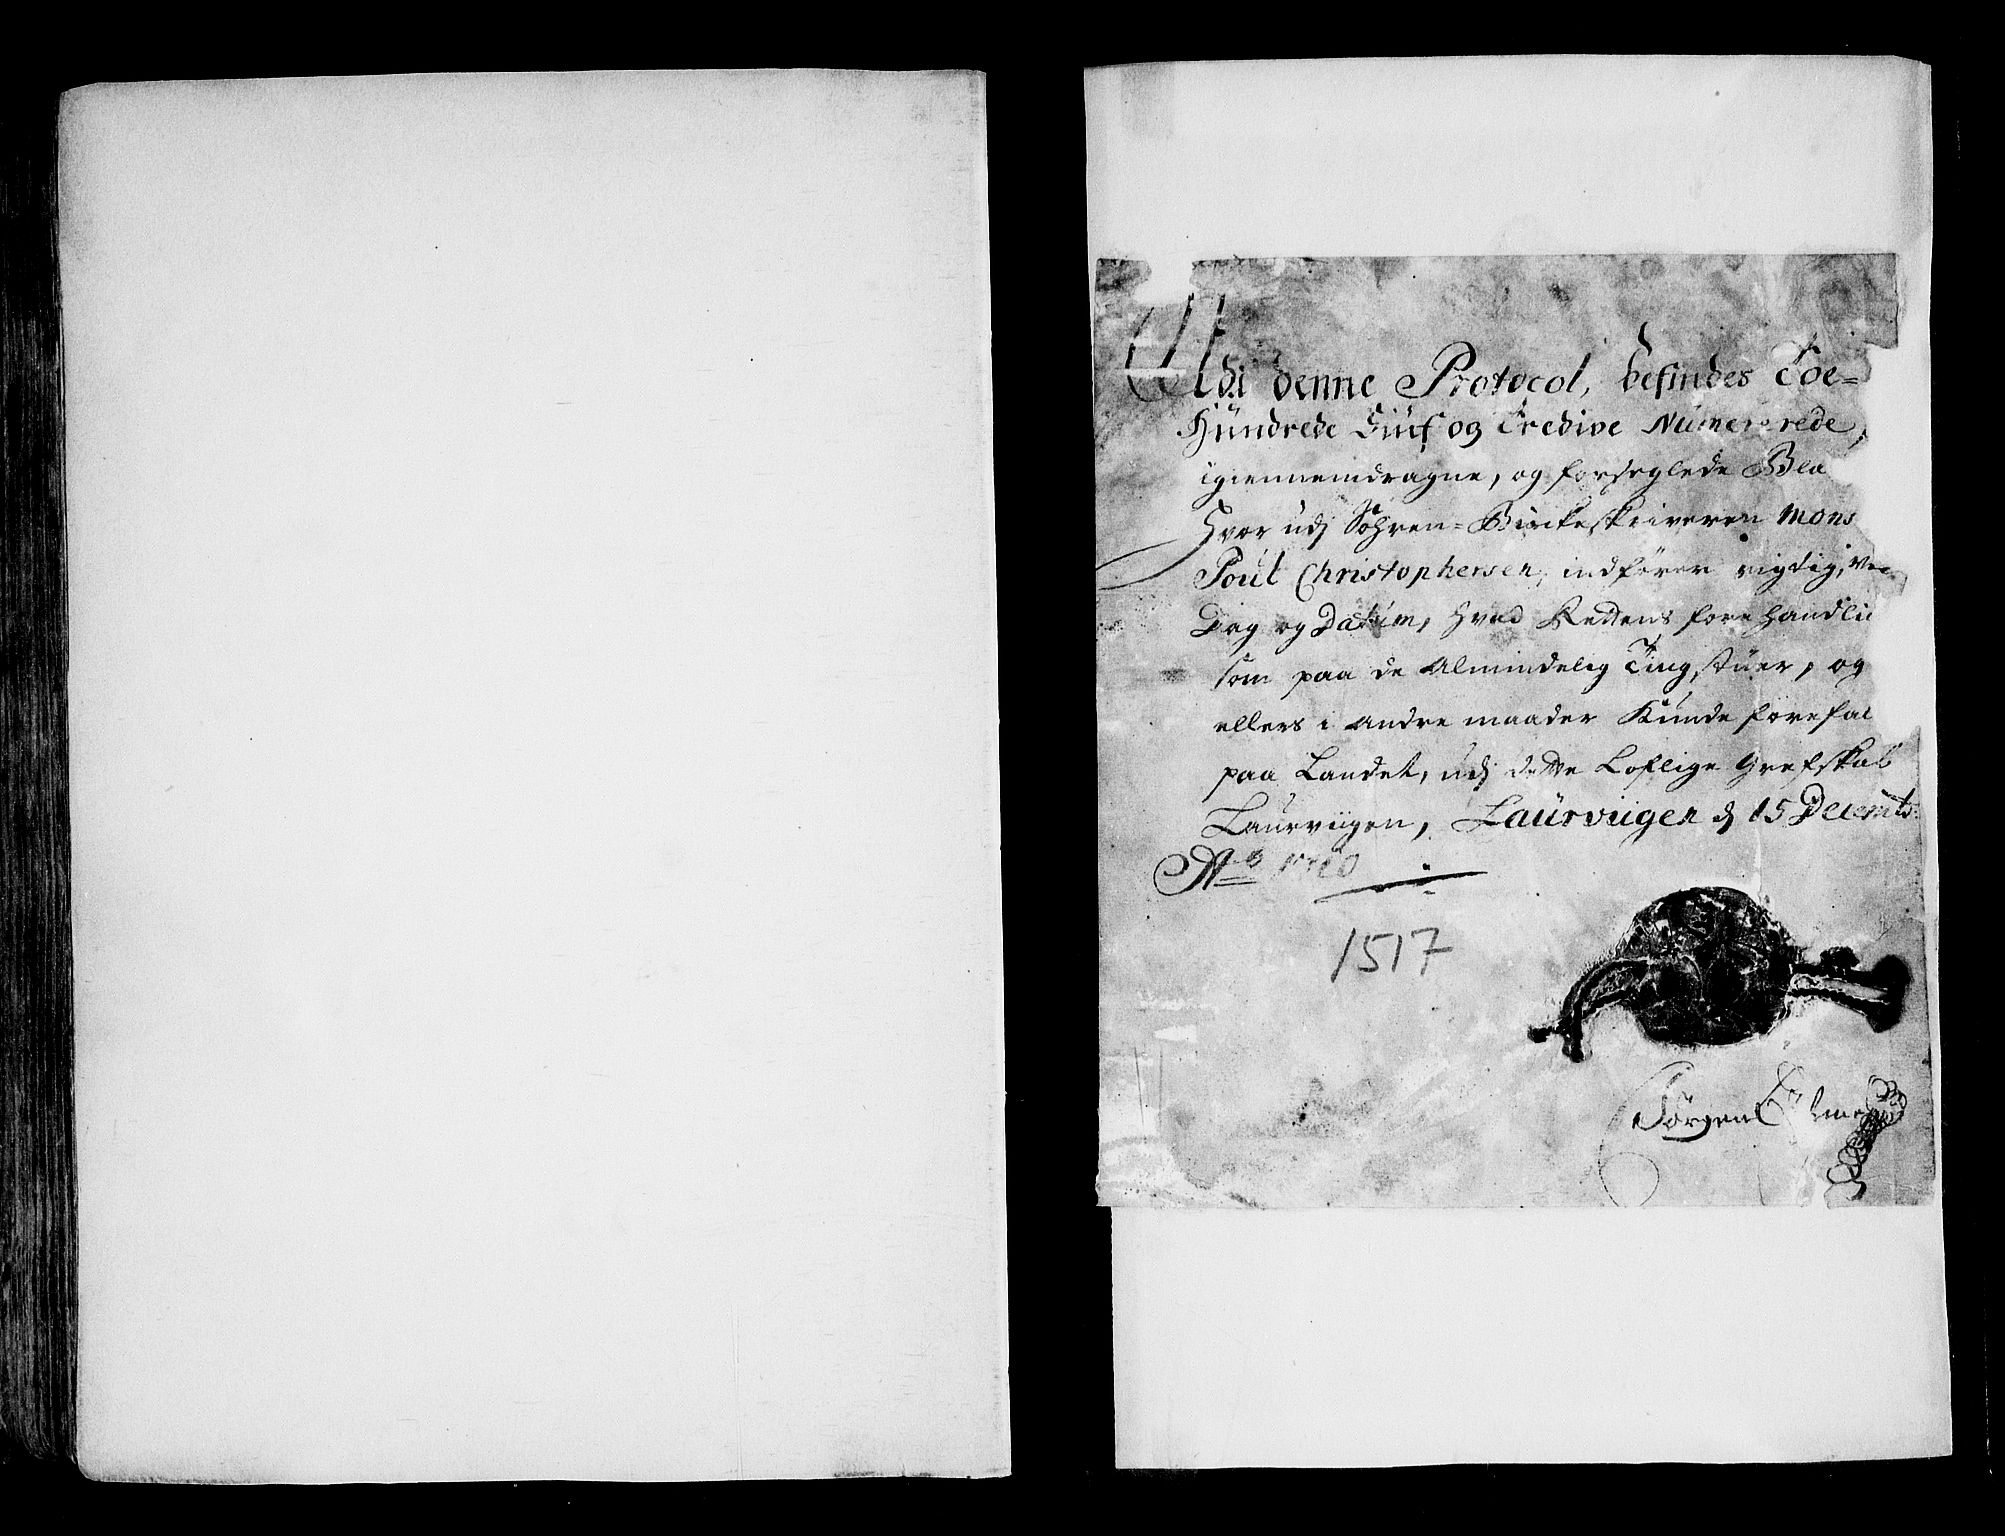 Udi denne Protocol, befindes Toe=
Hundrede Fiuf og Tredive Numererede,
igiennemdragne, og forseglede Bla
Hvor udj Sohren=Birckeskriveren Mons
Poul Christophersen, indfører rigtig, ved
Dag og Datum, hvad Rettens forehandli
som paa de Almindelig Ting, stuer, og
ellers i andre maader Kunde forefal
paa Landet, udj dette Loflige Grefskab
Laurviigen, Laurviigen d 15 Decemb:
Ao 1710
1517
Jørgen